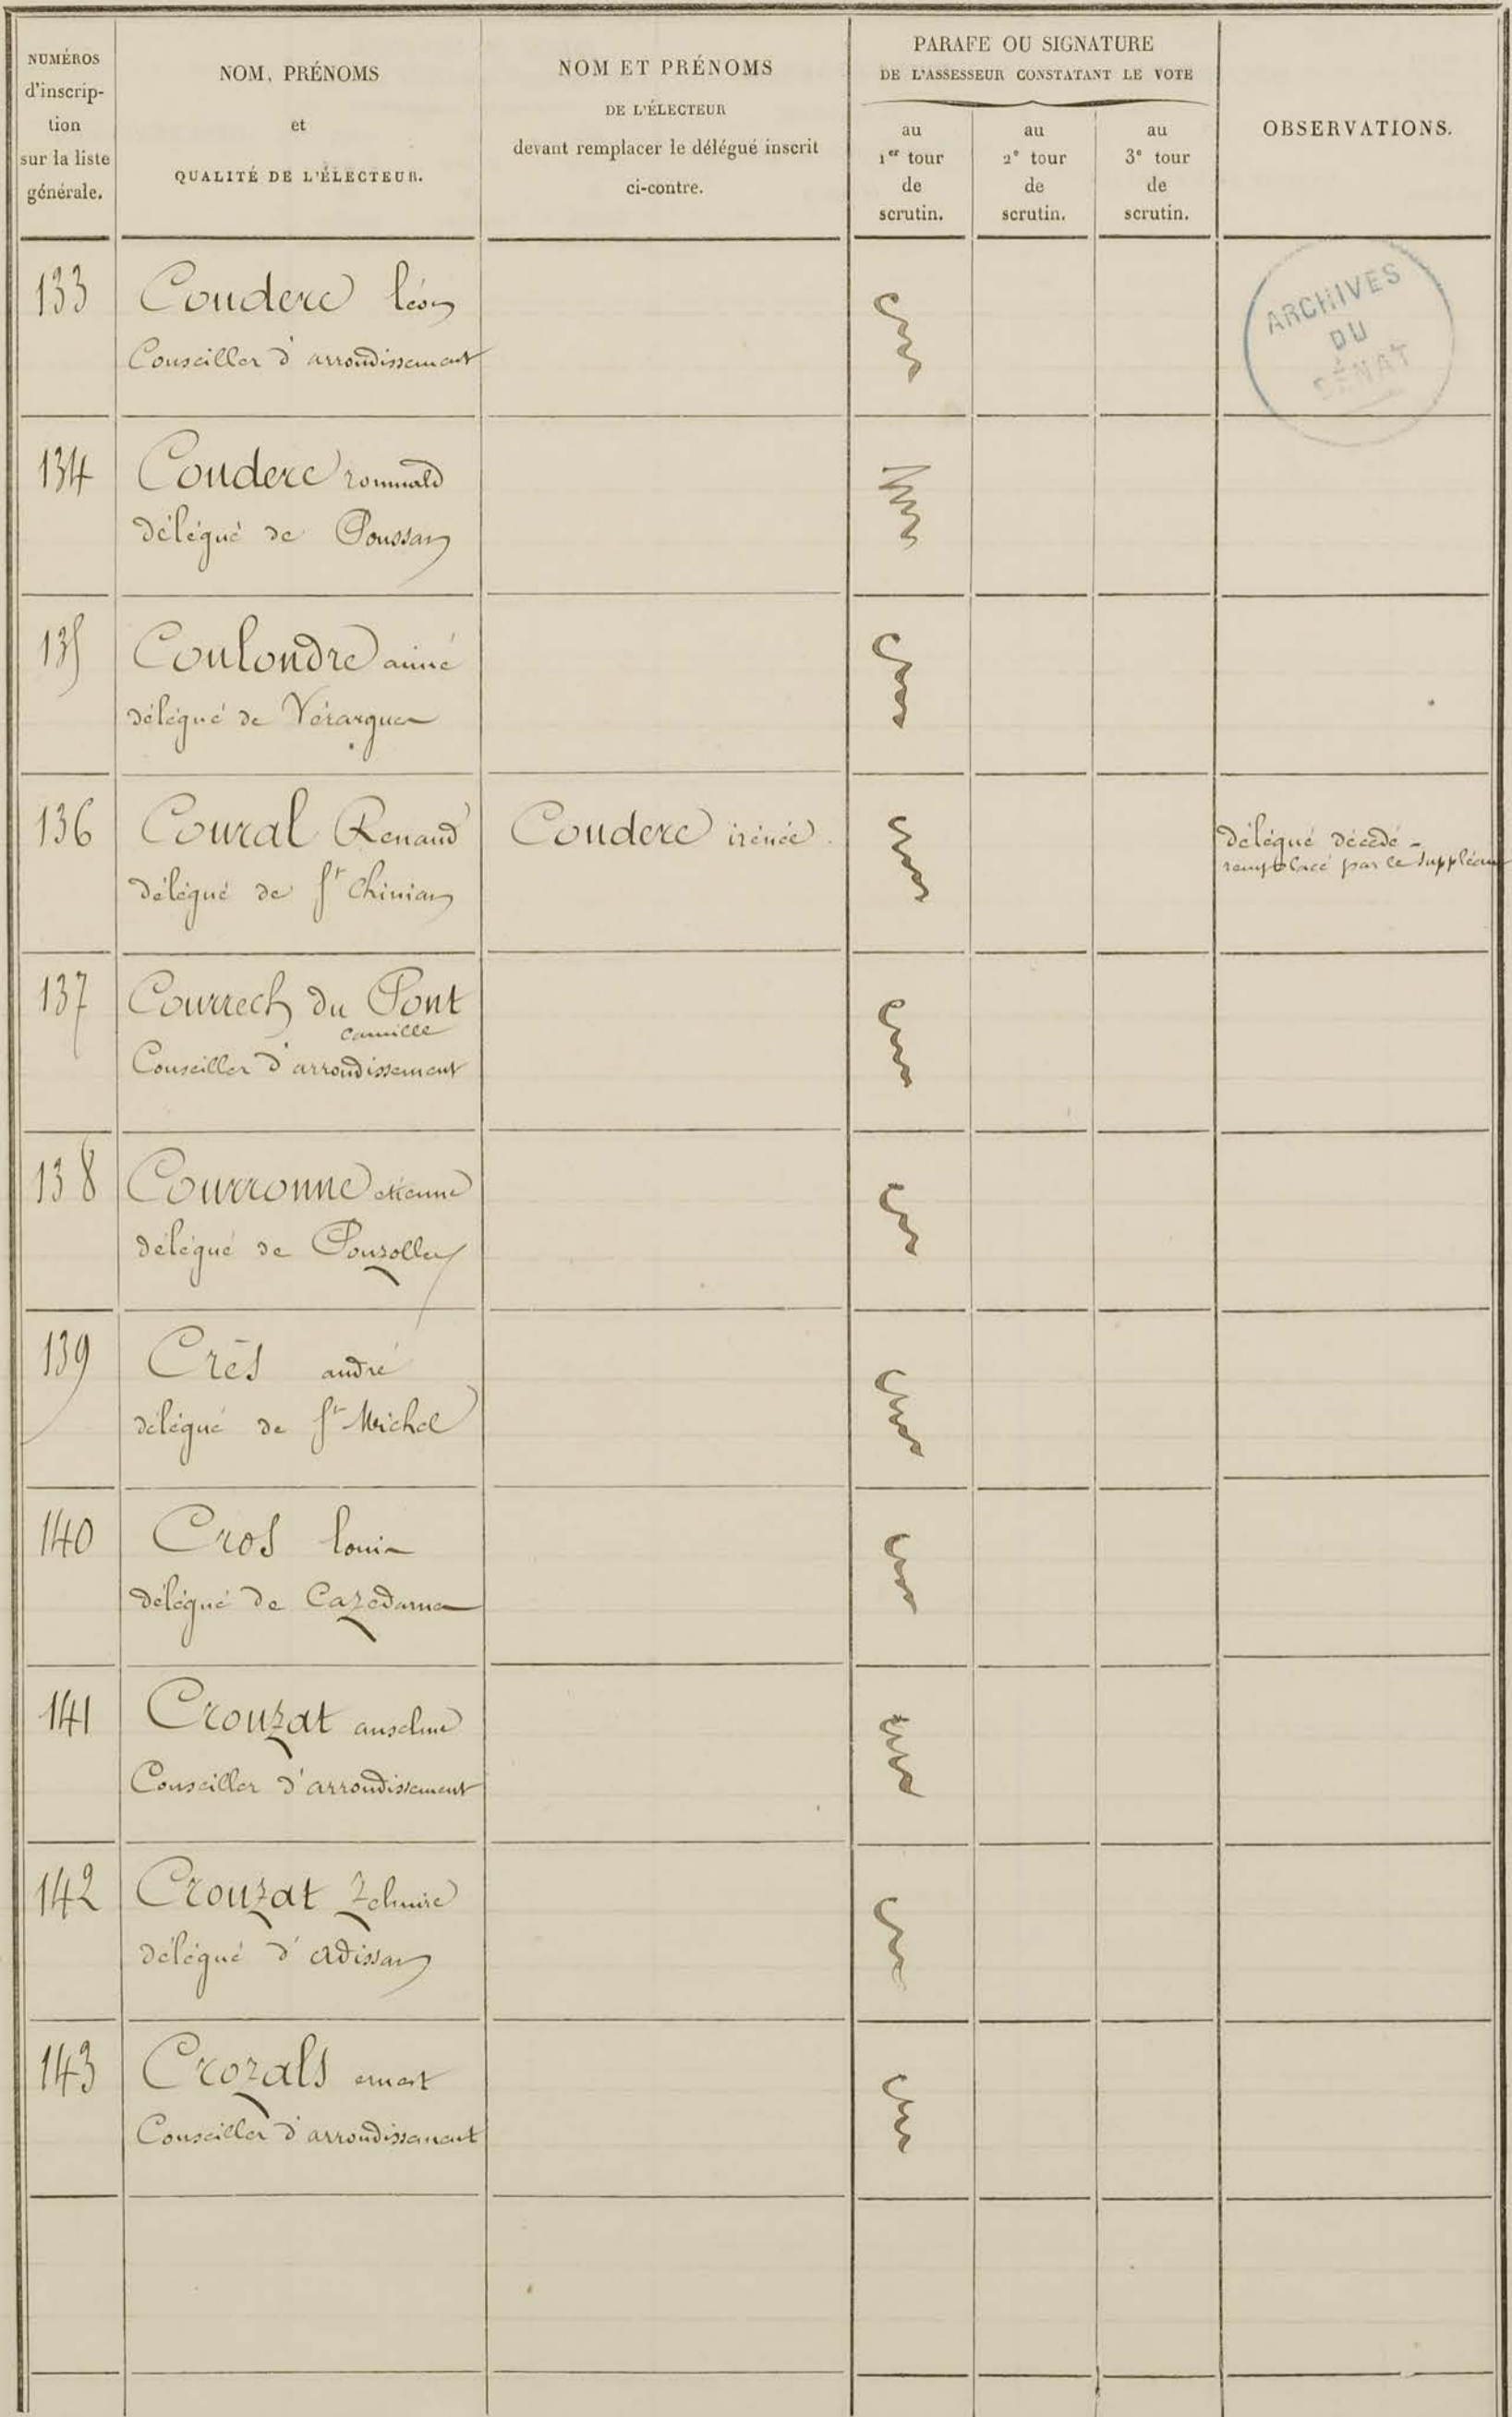 NUMÉROS
d'inscrip-
tion
sur la liste
générale.
NOM, PRÉNOMS
et
QUALITÉ DE L'ÉLECTEUR.
NOM ET PRÉNOMS
DE L'ÉLECTEUR
devant remplacer le délégué inscrit
ci-contre.
PARAFE OU SIGNATURE
DE L'ASSESSEUR CONSTATANT LE VOTE
au
1er tour
de
scrutin.
au
2e tour
de
scrutin.
au
3e tour
de
scrutin.
OBSERVATIONS.
ARCHIVES
DU
SÉNAT
133 Couderc léon
Conseiller d'arrondissement
134 Couderc romuald
délégué de Poussan
135 Coulondre aimé
délégué de Vérargues
136 Coural Renaud Couderc irénée. délégué décédé -
délégué de St Chinian remplacé par le suppléant
137 Courrech du Pont
camille
Conseiller d'arrondissement
138 Courronne etienne
délégué de Pouzolles
139 Crès andré
délégué de St Michel
140 Cros louis
délégué de Cazedarnes
141 Crouzat anselme
Conseiller d'arrondissement
142 Crouzat Zelmire
délégué d'adissan
143 Crozals ernest
Conseiller d'arrondissement